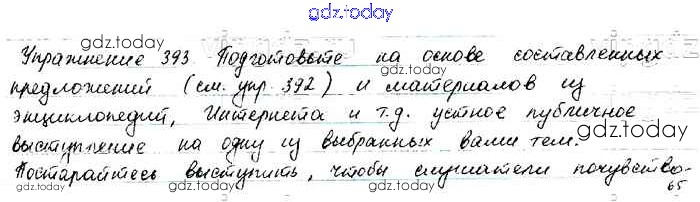 gdz.today
Упражнение 393. Подготовьте на основе составленных
gdz.today gdz.today
предложений (см. упр. 392) и материалов из
gdz.today
энциклопедий, Интернета и т.д. устное публичное
gdz.today
выступление на одну из выбранных вами тем.
gdz.today
Постарайтесь выступить, чтобы слушатели почувство-
gdz.today gdz.today
65